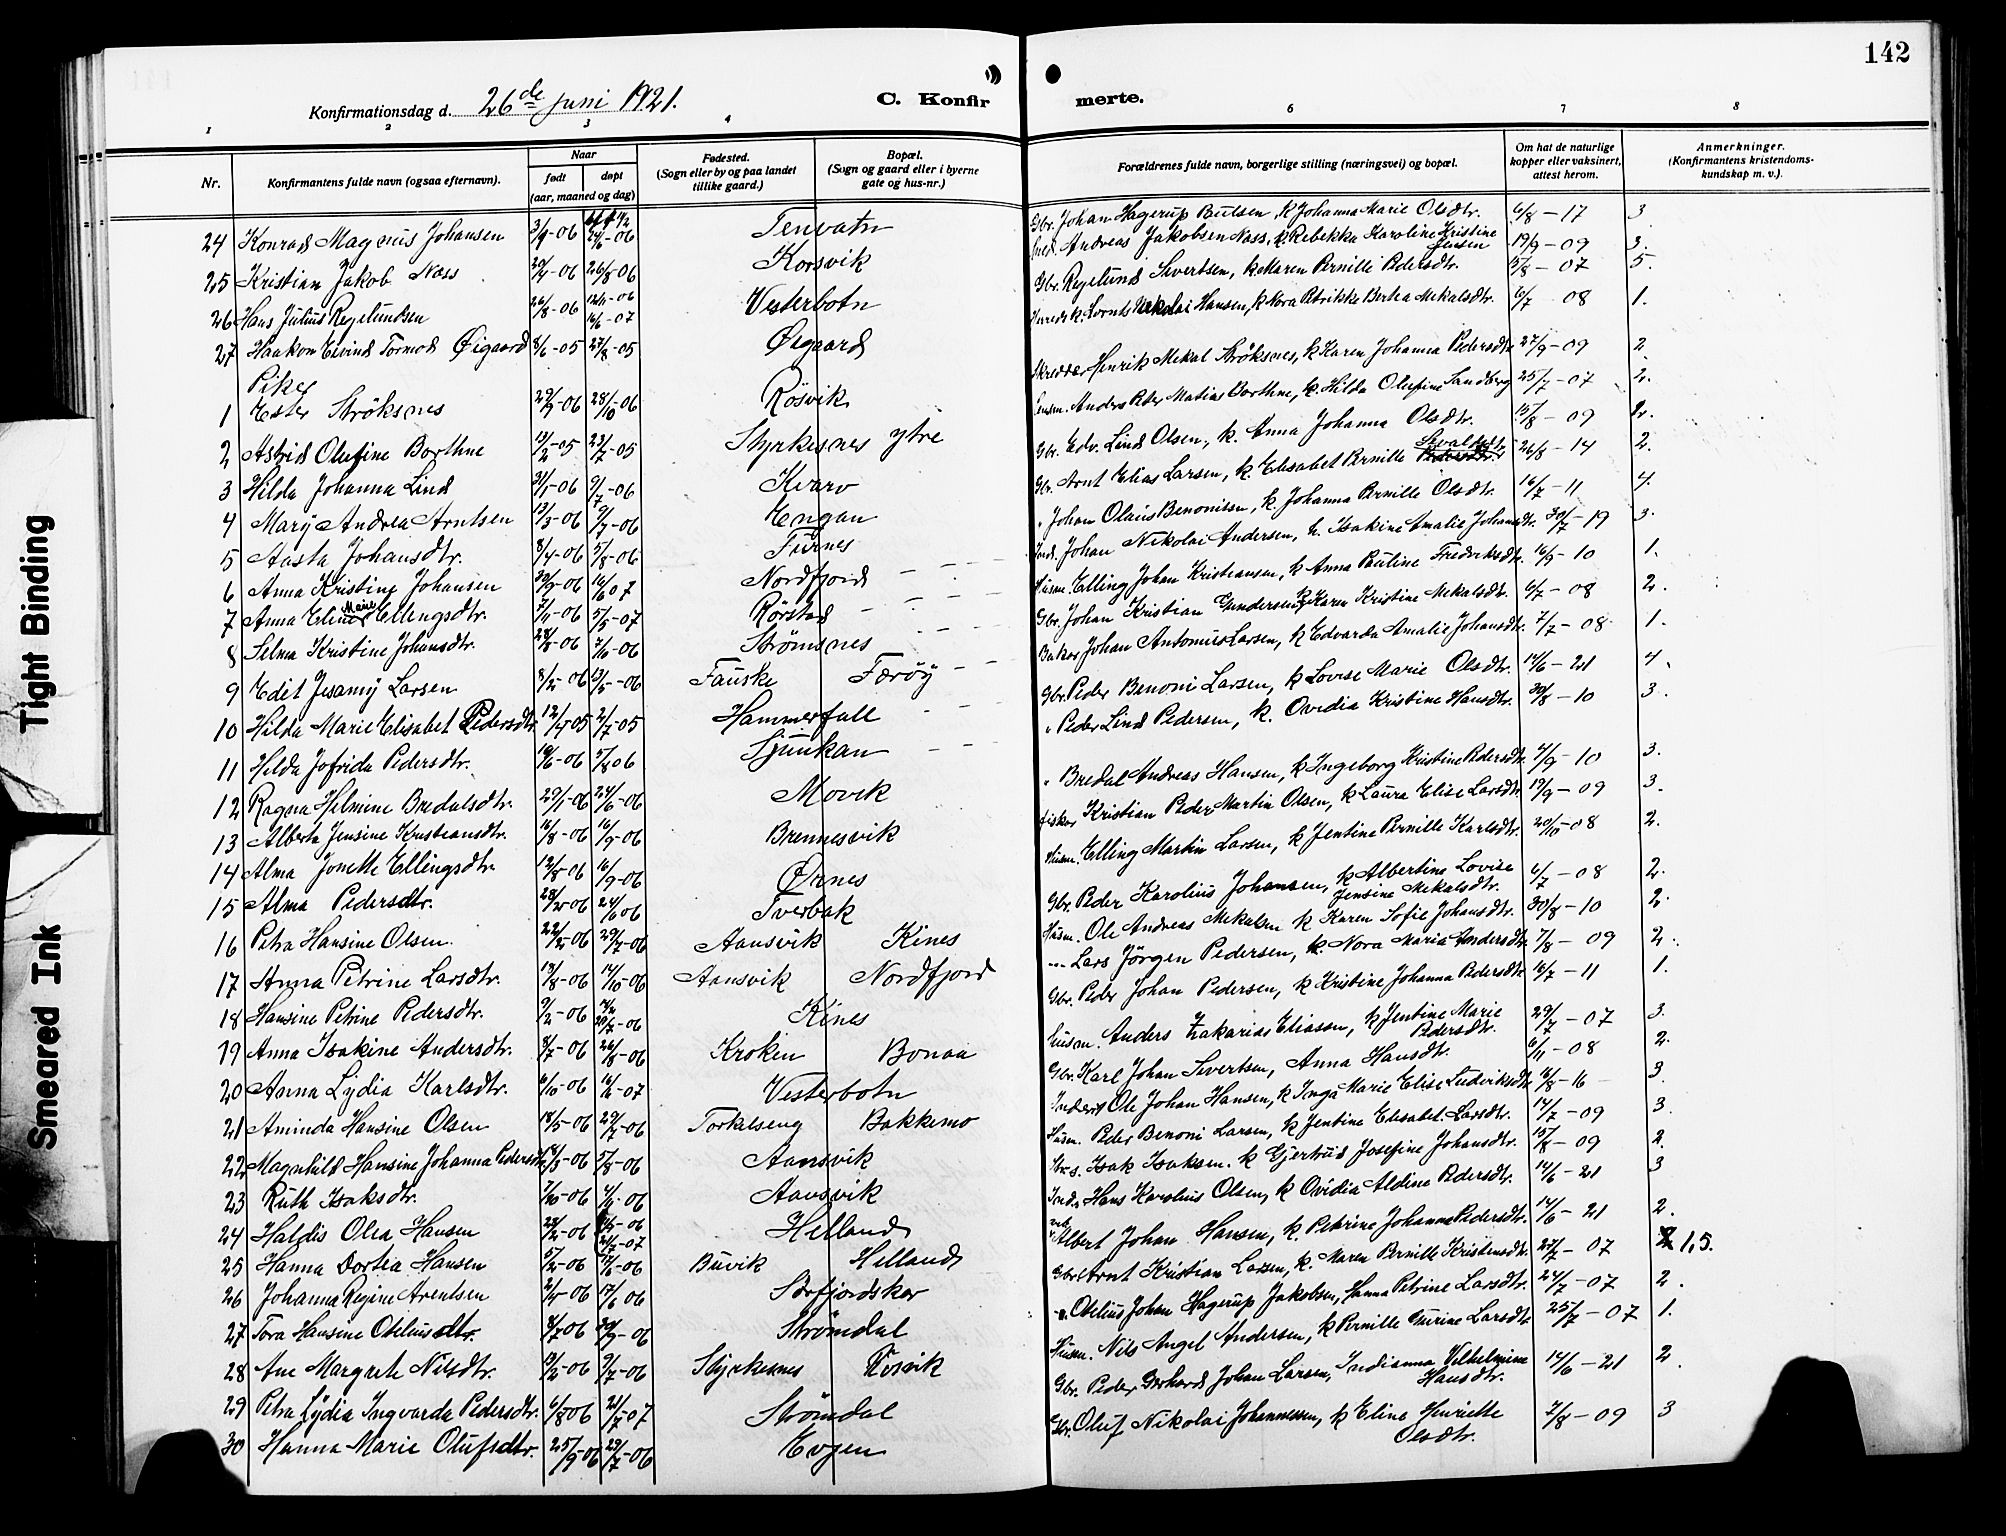 142
Konfirmationsdag d. 26de juni 1921.
C. Konfir
merte.
1 2 3 4 6 7 8
Nr.
Konfirmantens fulde navn (ogsaa efternavn).
Naar
født
døpt
(aar, maaned og dag)
Fødested.
(Sogn eller by og paa landet
tillike gaard.)
Bopæl.
(Sogn og gaard eller i byerne
gate og hus-nr.)
Forældrenes fulde navn, borgerlige stilling (næringsvei) og bopæl.
Om hat de naturlige
kopper eller vaksinert,
attest herom.
Anmerkninger.
(Konfirmantens kristendoms-
kundskap m. v.).
24 Konrad Magnus Johansen 3/9-06 Tenvatn Gbr. Johan Hagerup Bulsen, k Johanna Marie Olsdtr. 6/8-17 3
25 Kristian Jakob Nass 26/8-06 Korsvik Andreas Jakobsen Nass, k. Rebekka Karoline Kristine Jensen 19/9-09 3.
26 Hans Julius Regelundsen 26/8-06 Vesterbotn Gbr. Regelund Sivertsen, k. Maren Pernille Pedersdtr. 15/8-07 5.
27 Haakon Eivind Tormod Øigaard 8/6-05 27/8-05 Øigaard Hansen, k Nora Petrikke Bertea Mekalsdtr. 6/7 08 1.
Piker
1 Ester Strøksnes 29/9-06 28/10-06 Rösvik Skredder Henrik Mekal Strøksnes, k Karen Johanna Pedersdtr. 27/9-09 2.
2 Astrid Olufine Borthne 13/2-05 23/7-05 Styrkesnes ytre Anders Peder Matias Borthne, k. Hilda Olufine Sandberg 25/7-07 2.
3 Hilda Johanna Lind 31/1-06 9/7-06 Kvarv Gbr. Edv. Lind Olsen, k. Anna Johanna Olsdtr. 15/8-09 2.
4 Mary Andrea Arntsen 13/3-06 9/7-06 Engan Gbr. Arnt Elias Larsen, k. Elisabet Pernille Sivaldsdtr. 26/8-14 2.
5 Aasta Johansdtr. 8/4-06 5/8-06 Furnes " Johan Olaus Benonisen, k. Johanna Pernille Olsdtr. 16/7-11 4.
6 Anna Kristine Johansen Nordfjord Johan Nikolai Andersen, k. Isakine Amalie Johansdtr. 30/7-19 3.
7 Anna Eline Marie Ellingsdtr. 7/11-06 5/5-07 Rørstad Husm. Elling Johan Kristiansen, k Anna Pauline Fredriksdtr. 16/9-10 1.
8 Selma Kristine Johansdtr. Strømsnes Gbr. Johan Kristian Gundersen, k Karen Kristine Mekalsdtr. 6/7-08 2.
9 Edit Jesamy Larsen 8/2-06 13/5-06 Fauske Færøy Baker Johan Antonius Larsen, k Edvarda Amalie Johansdtr. 7/7-08 1.
10 Hilda Marie Elisabet Pedersdtr. 2/7-05 Hammerfall Gbr. Peder Benoni Larsen, k Lovise Marie Olsdtr. 14/6-21 4.
11 Hilda Jofrida Pedersdtr. 5/8 06 Sjunkan " Peder Lind Pedersen, k. Ovidia Kristine Hansdtr. 30/8-10 3.
12 Ragna Helmine Bredalsdtr. 29/1-06 24/6-06 Movik " Bredal Andreas Hansen, k Ingeborg Kristine Pedersdtr. 4/9-10 3.
13 Alberta Jensine Kristiansdtr. 16/8-06 16/9-06 Brennesvik Fisker Kristian Peder Martin Olsen, k Laura Elise Larsdtr. 19/9-09 3.
14 Alma Jonette Ellingsdtr. 12/8-06 16/9-06 Ørnes Husm. Elling Martin Larsen, k Jentine Pernille Karlsdtr. 20/10-08 2.
15 Alma Pedersdtr. 28/2-06 24/6 06 Tverbak Gbr. Peder Karolius Johansen, k Albertine Lovise Jensine Mekalsdtr. 6/7-08 2.
16 Petra Hansine Olsen 22/2-06 29/7-06 Aansvik Kines Husm. Ole Andreas Mekalsen k Karen Sofie Johansdtr. 30/8-10 2.
17 Anna Petrine Larsdtr. 19/8-06 14/10-06 Aansvik Nordfjord Lars Jörgen Pedersen, k. Nora Maria Andersdtr. 7/8-09 2.
18 Hansine Petrine Pedersdtr. 9/2-06 29/7-06 Kines Gbr. Peder Johan Pedersen, k Kristine Johanna Pedersdtr. 16/7-11 1.
19 Anna Isakine Andersdtr. 8/7-06 26/8-06 Kroken Bonaa Husm. Anders Zakarias Eliassen, k Jentine Marie Pedersdtr. 29/7-07 3.
20 Anna Lydia Karlsdtr. 6/10-06 Vesterbotn Gbr. Karl Johan Sivertsen, Anna Hansdtr. 6/11-08 2.
21 Aminda Hansine Olsen 18/5-06 29/7-06 Torkelseng Bakkemo Inderst Ole Johan Hansen, k Inga Marie Elise Ludviksdtr. 16/8-16 3.
22 Magnhild Hansine Johanna Pedersdtr. 5/8-06 Aansvik Husm. Peder Benoni Larsen, k Jentine Elisabet Larsdtr. 14/7-09 3.
23 Ruth Isaksdtr. Aansvik Isak Isaksen. k Gjertrud Josefine Johansdtr. 15/8-09 2.
24 Haldis Olea Hansen Helland Inds. Hans Karolius Olsen, k Ovidia Aldine Pedersdtr. 14/6-21 3
25 Hanna Dortea Hansen 5/2-06 17/6-06 Buvik Helland Albert Johan Hansen, k. Petrine Johanna Pedersdtr. 14/6-21 2.
26 Johanna Regine Arentsen 17/6 06 Sørfjordskar Gbr. Arnt Kristian Larsen, k. Maren Pernille Kristensdtr. 27/7-07 1,5.
27 Tora Hansine Oteliusdtr. 30/9-06 Strømdal Otelius Johan Hagerup Jakobsen, Hanna Petrine Larsdtr. 24/7-07 2.
28 Ane Margrete Nilsdtr. 9/7-06 Styrkesnes Husm. Nils Angel Andersen, k Pernille Larsdtr. 25/7-07 1.
29 Petra Lydia Ingvarda Pedersdtr. 6/8 06 21/7-07 Strömdal Gbr. Peder Gerhard Johan Larsen, Indianna Vilhelmine Hansdtr. 14/6-21 2.
30 Hanna Marie Olufsdtr. 25/9-06 Evjen Gbr. Oluf Nikolai Johannessen, k Eline Henriette Olsdtr. 7/8-09 3
Tight Binding
Smeared Ink